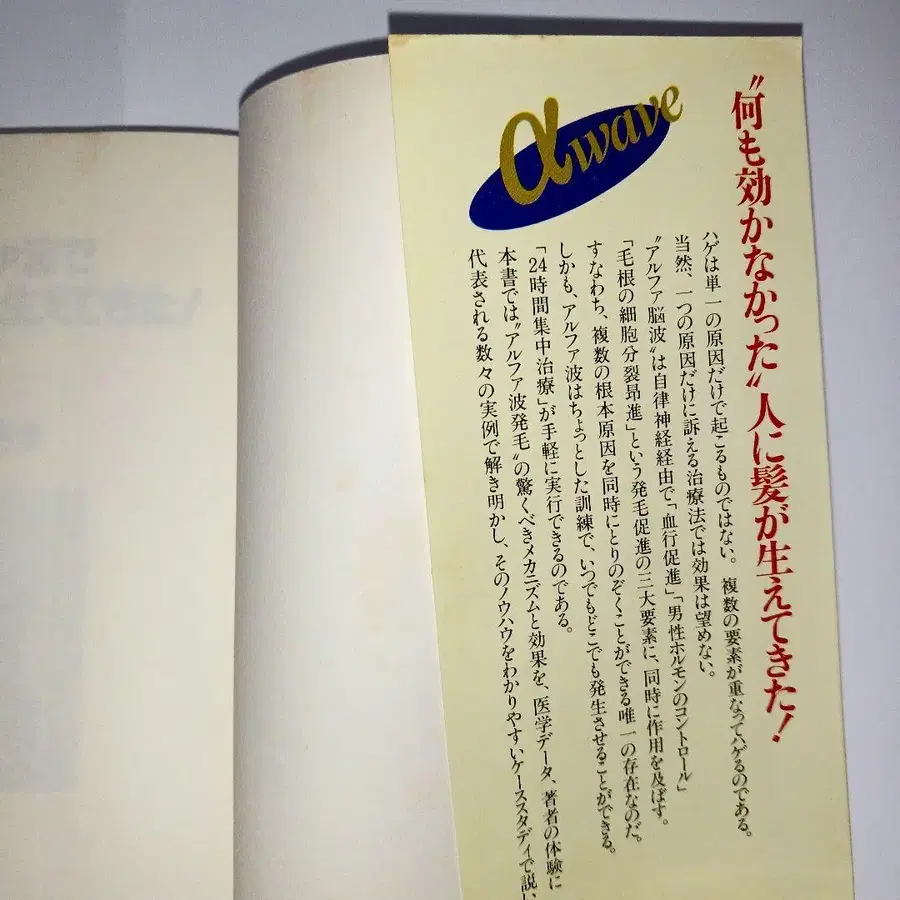 αwave
〝何も効かなかった〟人に髪が生えてきた！
ハゲは単一の原因だけで起こるものではない。複数の要素が重なってハゲるのである。
当然、一つの原因だけに訴える治療法では効果は望めない。
〝アルファ脳波〟は自律神経経由で「血行促進」「男性ホルモンのコントロール」
「毛根の細胞分裂昂進」という発毛促進の三大要素に、同時に作用を及ぼす。
すなわち、複数の根本原因を同時にとりのぞくことができる唯一の存在なのだ。
しかも、アルファ波はちょっとした訓練で、いつでもどこでも発生させることができる。
「24時間集中治療」が手軽に実行できるのである。
本書では〝アルファ波発毛〟の驚くべきメカニズムと効果を、医学データ、著者の体験に
代表される数々の実例で解き明かし、そのノウハウをわかりやすいケーススタディで説い